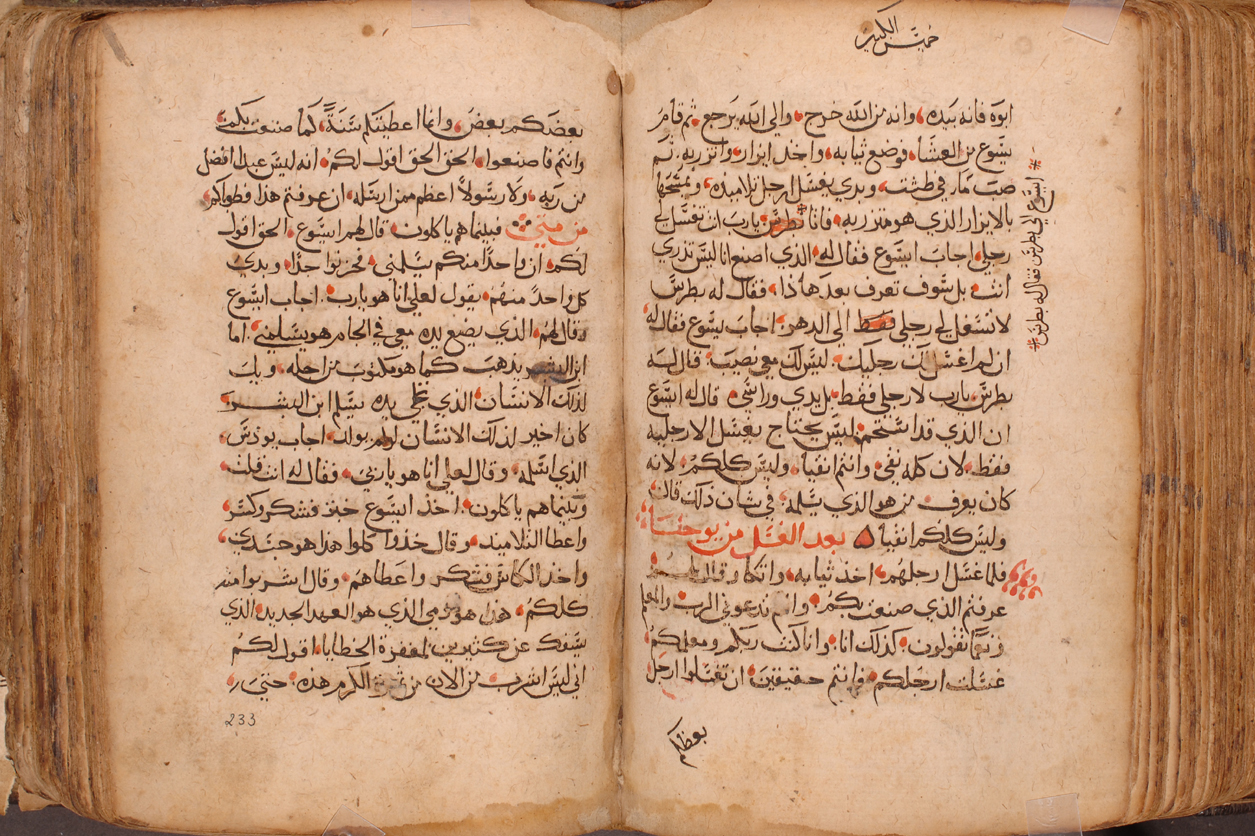 خميس الكبير
ابوه فانه بيده، وانه من الله خرج، والي الله يرجع، ثم قام
يسوع من العشا، فوضع ثيابه، واخد ايزار، واتزر به، ثم
صب ما في طشت، وبدي يغسل ارجل تلاميذه، ويمسحها
بالايزار الذي هو متزر به، فاتا بطرس يارب انت تغسل لي
رجلي، اجاب ايسوع فقال له، الذي اصنع انا ليس تدري
انت، بل سوف تعرف بعد هاذا، فقال له بطرس
لا تغسل لي رجلي فقط الي الدهر، اجاب يسوع فقال له
ان لم اغسل لك رجليك، ليس لك معي نصيب، قال له
بطرس، يارب لا رجلي فقط، بل يدي وراسي، قال له ايسوع
ان الذي قد استحم، ليس يحتاج يغسل الا رجليه
فقط، لان كله نقي، وانتم انقيا، وليس كلكم، لانه
كان يعرف من هو الذي يسلمه، في شان ذلك قال
وليس كلكم انقيا بعد الغسل من يوحنا
فلما غسل ارجلهم، اخذ ثيابه، واتكا وقال
عرفتم الذي صنعت بكم، وانتم تدعوني الرب والمعلم
ونعما تقولون، كذلك انا، وانا كنت ربكم ومعلمكم
غسلت ارجلكم، وانتم حقيقين، ان تغسلوا ارجل
بعظكم
ايسوع الي بطرس فقال له بطرس
بعضكم بعض، وانما اعطيتكم سنة، كما صنعت بكم
وانتم فاصنعوا، الحق الحق اقول لكم، انه ليس عبدا افضل
من ربه، ولا رسولا اعظم ممن ارسله، ان عرفتم هذا فطوباكم
من متي فبينما هم ياكلون، قال لهم ايسوع، الحق اقول
لكم، ان واحدا منكم يسلمني، فحزنوا جدا، وبدي
كل واحد منهم، يقول لعلي انا هو يارب، اجاب ايسوع
وقال لهم، الذي يضع يده معي في الجام هو يسلمني، اما
ابن البشر يذهب كما هو مكتوب من اجله، ويل
لذلك الانسان، الذي علي يده يسلم ابن البشر
كان اخير لذلك الانسان لو لم يولد، اجاب يوذس
الذي اسلمه، وقال لعلي انا هو يا ربي، فقال له انت قلت
وبينما هم ياكلون، اخذ ايسوع خبز فشكر وكسر،
واعطا التلاميذ، وقال خذوا كلوا هذا هو جسدي،
واخذ الكاس فشكر واعطاهم، وقال اشربوا منه
كلكم، هذا هو دمي الذي هو العهد الجديد، الذي
يسفك عن كثيرين لمغفرة الخطايا، اقول لكم
اني ليس اشرب من الان من الكرم هذه، حتي
233